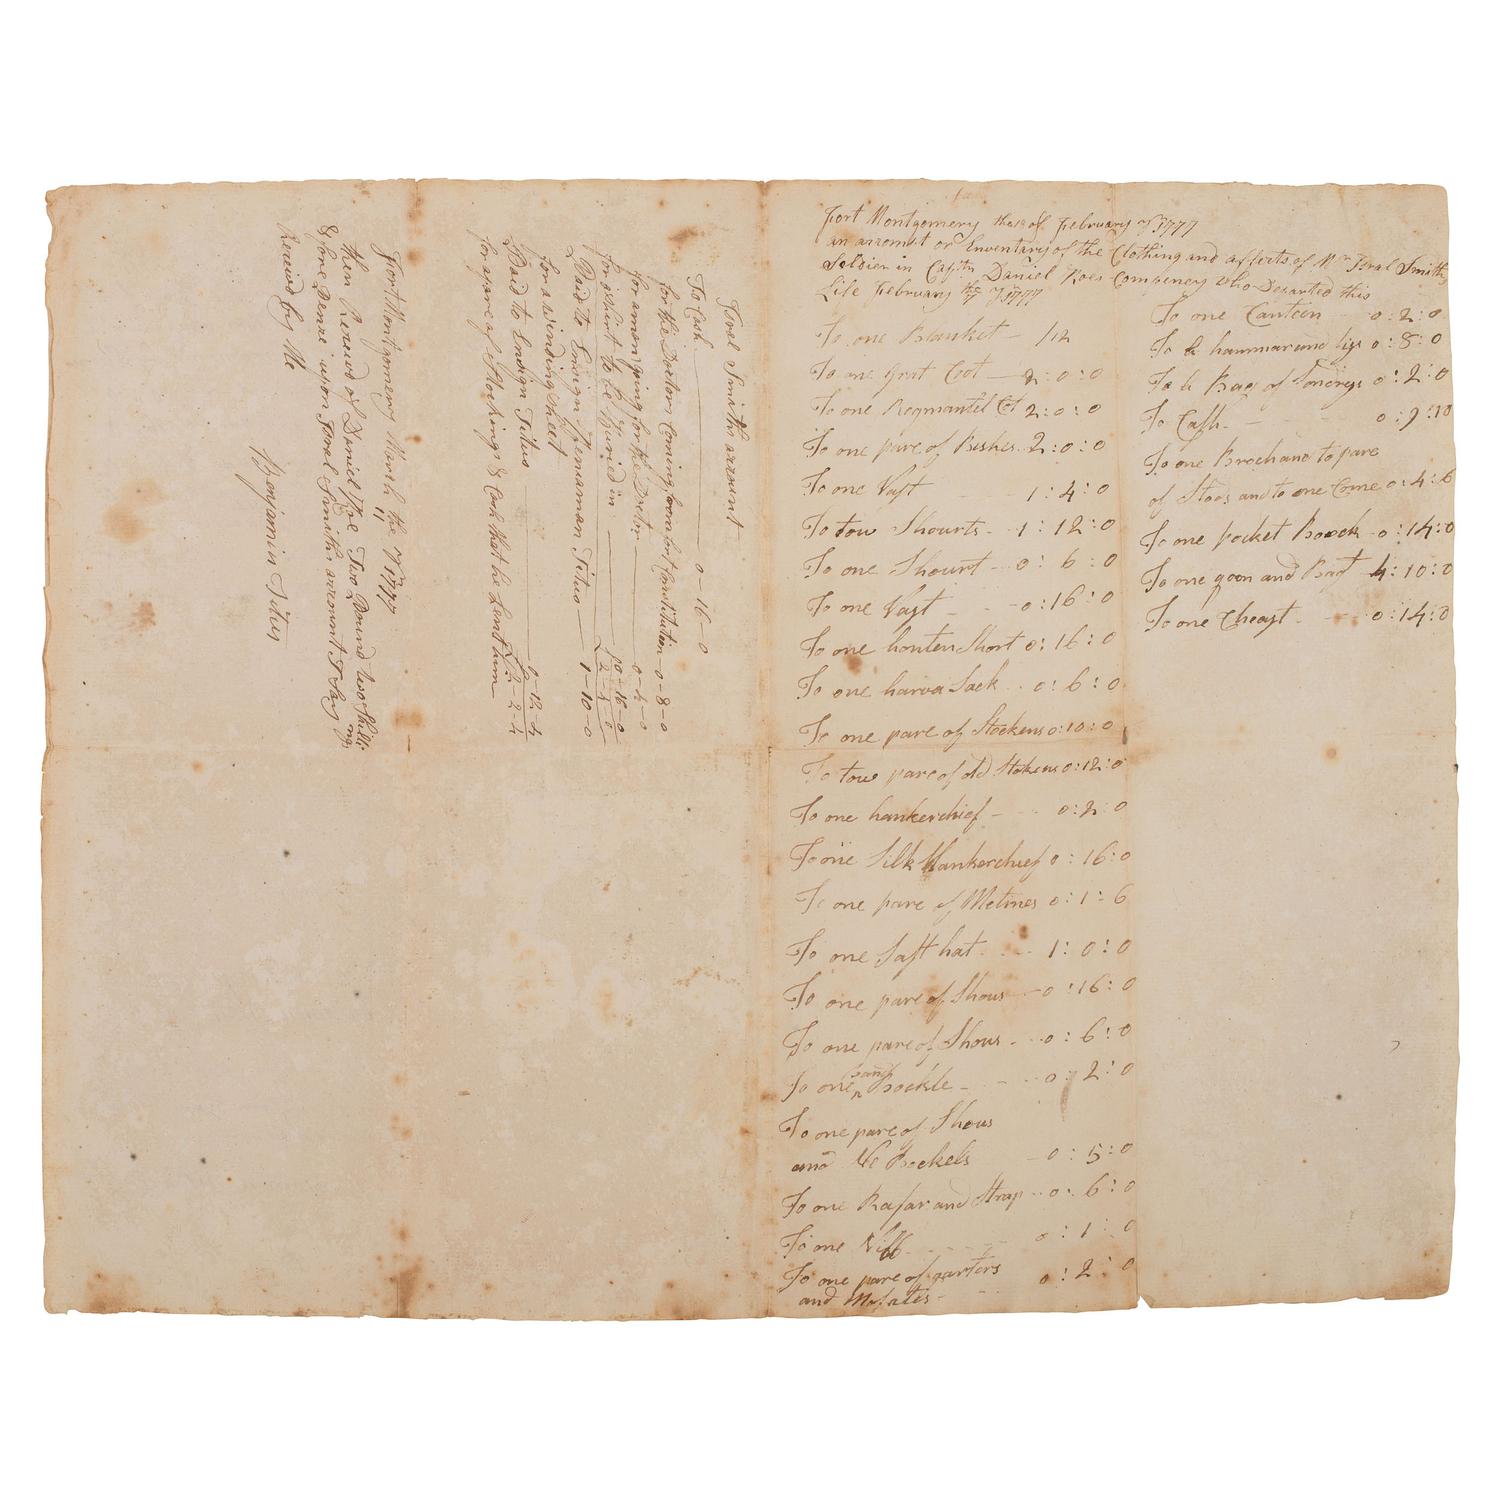 Fort Montgomery the of February ye 1777
an account or Enventary of the Clothing and affects of Mr Isral Smith
Soldier in Captn Daniel Roes Compeney who Desarted this
Life February the 7 ye 1777
To one Blanket - 1/2
To one Grat Cot - 2:0:0
To one Regmantel Ct 2:0:0
To one pare of 2:0:0
To one Vast 1:4:0
To tow Shourts - 1:12:0
To one Shourt - 0:6:0
To one Vast - - 0:16:0
To one honten Short 0:16:0
To one harva Sack .. 0:6:0
To one pare of Stockens 0:10:0
To tow pare of old Stokens 0:12:0
To one hankerchief - 0:2:0
To one Silk Hankerchief 0:16:0
To one pare of Metines 0:1:6
To one Saft hat 1:0:0
To one pare of Shous - 0:16:0
To one pare of Shous - 0:6:0
To one Bockle - 0:2:0
To one pare of Shous
and Ne Bockels - 0:5:0
To one Rasar and Strap - 0:6:0
To one 0:1:0
To one pare of garters
and 0:2:0
To one Canteen 0:2:0
To a hammar and 0:8:0
To a Bag of Sondrys 0:2:0
To Cash - 0:9:10
To one Broch and to pare
of Stoos and to one Come 0:4:6
To one pocket Boock 0:14:0
To one goon and Bag 4:10:0
To one Cheast - 0:14:0
Isral Smiths account
To Cash 0-16-0
for the Docters coming from Constitution 0-8-0
for a man going for the Docter 0-4-0
for a shirt to be Buried in 0-16-0
£2-4-0
Paid to Ensign Titus 1-10-0
for a winding sheet
Paid to Ensign Titus 0-12-4
£2-2-4
for a pare of Stockings & Cash that he Lent him
Fort Montgomery March the 11 ye 1777
then Receivd of Daniel Roe Two Pound two Shilli
ngs
& fone Pence upon Isral Smiths account I Say
Receivd by Me
Benjamin Titus